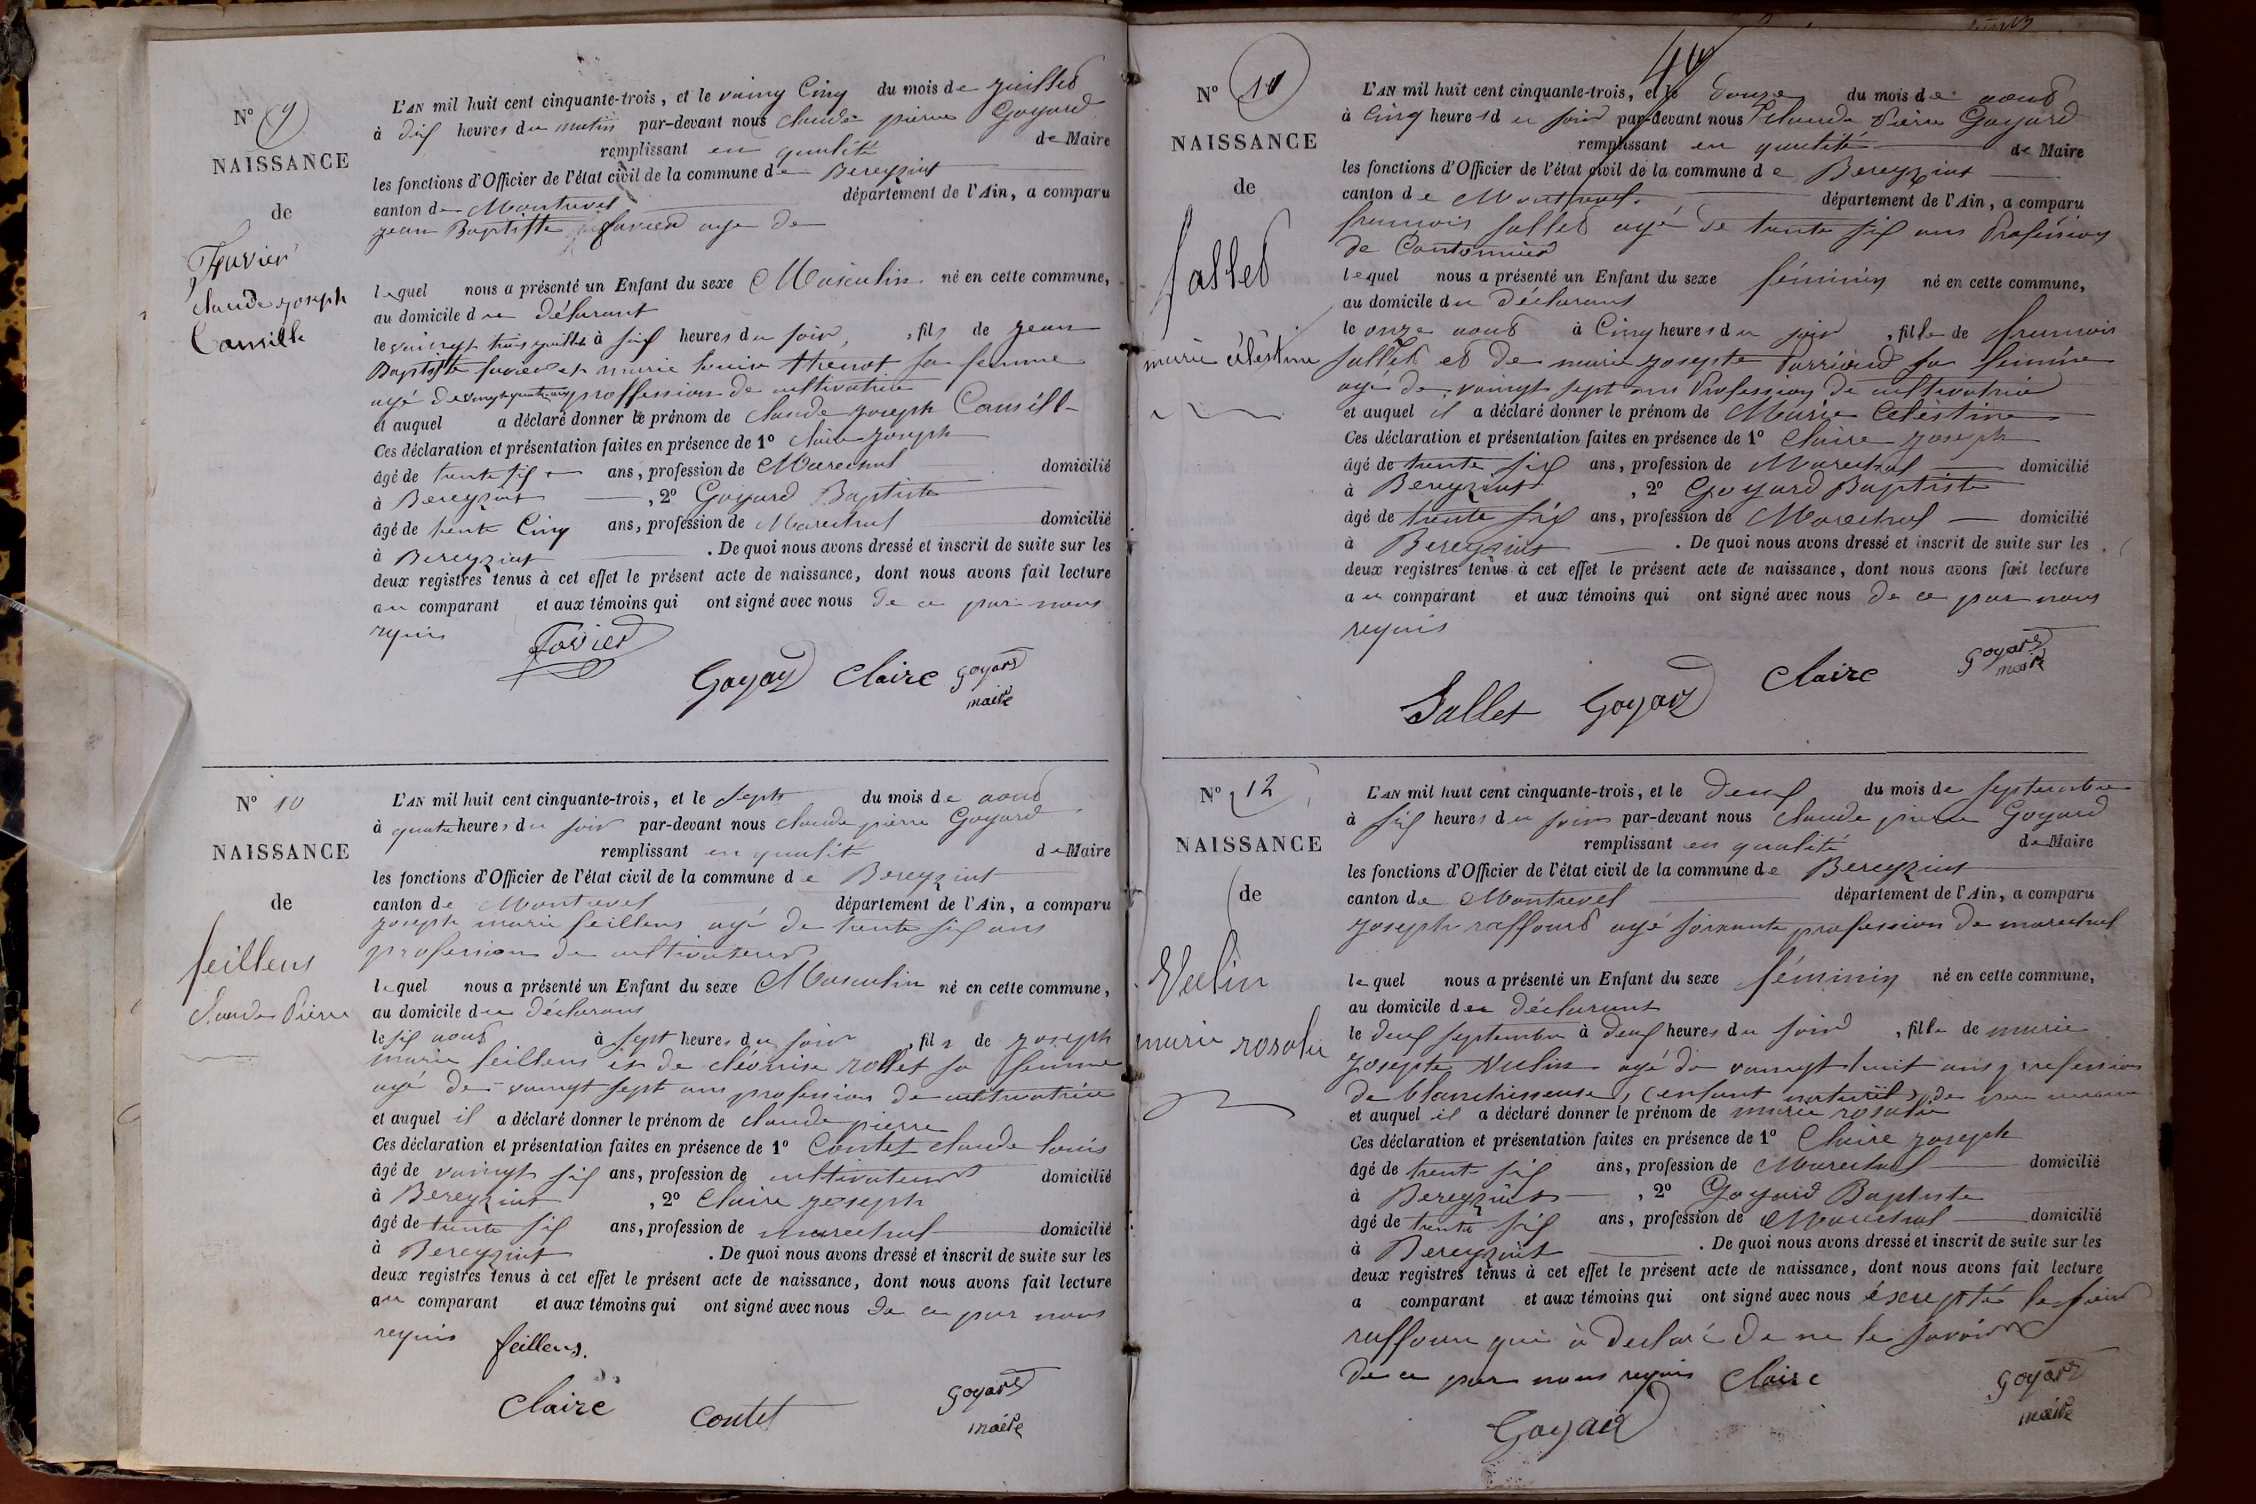 N° 9
NAISSANCE
de
Favier
claude joseph
Camille
L'AN mil huit cent cinquante-trois, et le vaing Cinq du mois de juillet
à dix heures du matin par-devant nous claude pierre Goyard
remplissant en qualité de Maire
les fonctions d'Officier de l'état civil de la commune de Bereyziat
canton de Montrevel département de l'Ain, a comparu
jean Baptiste favier age de
lequel nous a présenté un Enfant du sexe Masculin né en cette commune,
au domicile du déclarant
le vaingt trois juillet à six heures du soir, fils de jean
Baptiste favier et marie louise thenot sa femme
agé de vaingt quatre ans proffession de cultivatrice
et auquel a déclaré donner le prénom de claude joseph Camille
Ces déclaration et présentation faites en présence de 1° claire joseph
âgé de trente six ans, profession de Marechal domicilié
à Bereyziat, 2° Goyard Baptiste
âgé de trente Cinq ans, profession de Marechal domicilié
à Bereyziat. De quoi nous avons dressé et inscrit de suite sur les
deux registres tenus à cet effet le présent acte de naissance, dont nous avons fait lecture
au comparant et aux témoins qui ont signé avec nous de ce par nous
requis
Favier
Goyard Claire goyard
maire
N° 10
NAISSANCE
de
feillens
Claude Pierre
L'AN mil huit cent cinquante-trois, et le sept du mois de aout
à quatre heures du soir par-devant nous claude pierre Goyard
remplissant en qualité de Maire
les fonctions d'Officier de l'état civil de la commune de Bereyziat
canton de Montrevel département de l'Ain, a comparu
joseph marie feillens agé de trente six ans
profession de cultivateur
lequel nous a présenté un Enfant du sexe Masculin né en cette commune,
au domicile du déclarant
le six aout à sept heures du soir, fils de joseph
marie feillens et de clévrise rollet sa femme
agé de vaingt sept ans profession de cultivatrice
et auquel il a déclaré donner le prénom de claude pierre
Ces déclaration et présentation faites en présence de 1° Contet claude louis
âgé de vaingt six ans, profession de cultivateur domicilié
à Bereyziat, 2° Claire joseph
âgé de trente six ans, profession de marechal domicilié
à Bereyziat. De quoi nous avons dressé et inscrit de suite sur les
deux registres tenus à cet effet le présent acte de naissance, dont nous avons fait lecture
au comparant et aux témoins qui ont signé avec nous de ce par nous
requis feillens.
Claire contet goyard
maire
N° 11
NAISSANCE
de
fallet
marie célestine
L'AN mil huit cent cinquante-trois, et le douze du mois de aout
à Cinq heures du soir par-devant nous Claude Pierre Goyard
remplissant en qualité de Maire
les fonctions d'Officier de l'état civil de la commune de Bereyziat
canton de Montrevel département de l'Ain, a comparu
francois fallet agé de trente six ans Profession
de Cantonnier
lequel nous a présenté un Enfant du sexe féminin né en cette commune,
au domicile du déclarant
le onze aout à Cinq heures du soir, fille de francois
fallet et de marie josepte sa femme
agé de vaingt sept ans Profession de cultivatrice
et auquel il a déclaré donner le prénom de Marie Celèstine
Ces déclaration et présentation faites en présence de 1° Claire joseph
âgé de trente six ans, profession de Marechal domicilié
à Bereyziat, 2° Goyard Baptiste
âgé de trente six ans, profession de Marechal domicilié
à Bereyziat. De quoi nous avons dressé et inscrit de suite sur les
deux registres tenus à cet effet le présent acte de naissance, dont nous avons fait lecture
au comparant et aux témoins qui ont signé avec nous de ce par nous
requis
Sallet Goyard Claire goyard
maire
N° 12
NAISSANCE
de
Vulin
marie rosalie
L'AN mil huit cent cinquante-trois, et le deux du mois de septembre
à six heures du soir par-devant nous claude pierre Goyard
remplissant en qualité de Maire
les fonctions d'Officier de l'état civil de la commune de Bereyziat
canton de Montrevel département de l'Ain, a comparu
joseph raffourd agé soixante profession de marechal
lequel nous a présenté un Enfant du sexe féminin né en cette commune,
au domicile du déclarant
le deux septembre à deux heures du soir, fille de marie
josepte Vulin agé de vaingt huit ans profession
de blanchisseuse, (enfant naturel) de
et auquel il a déclaré donner le prénom de marie rosalie
Ces déclaration et présentation faites en présence de 1° Claire joseph
âgé de trente six ans, profession de Marechal domicilié
à Bereyziat, 2° Goyard Baptiste
âgé de trente six ans, profession de Marechal domicilié
à Bereyziat. De quoi nous avons dressé et inscrit de suite sur les
deux registres tenus à cet effet le présent acte de naissance, dont nous avons fait lecture
a comparant et aux témoins qui ont signé avec nous éxcepté le sieur
raffour qui à declaré de ne le savoir
de ce par nous requis Claire goyard
maire
Goyard